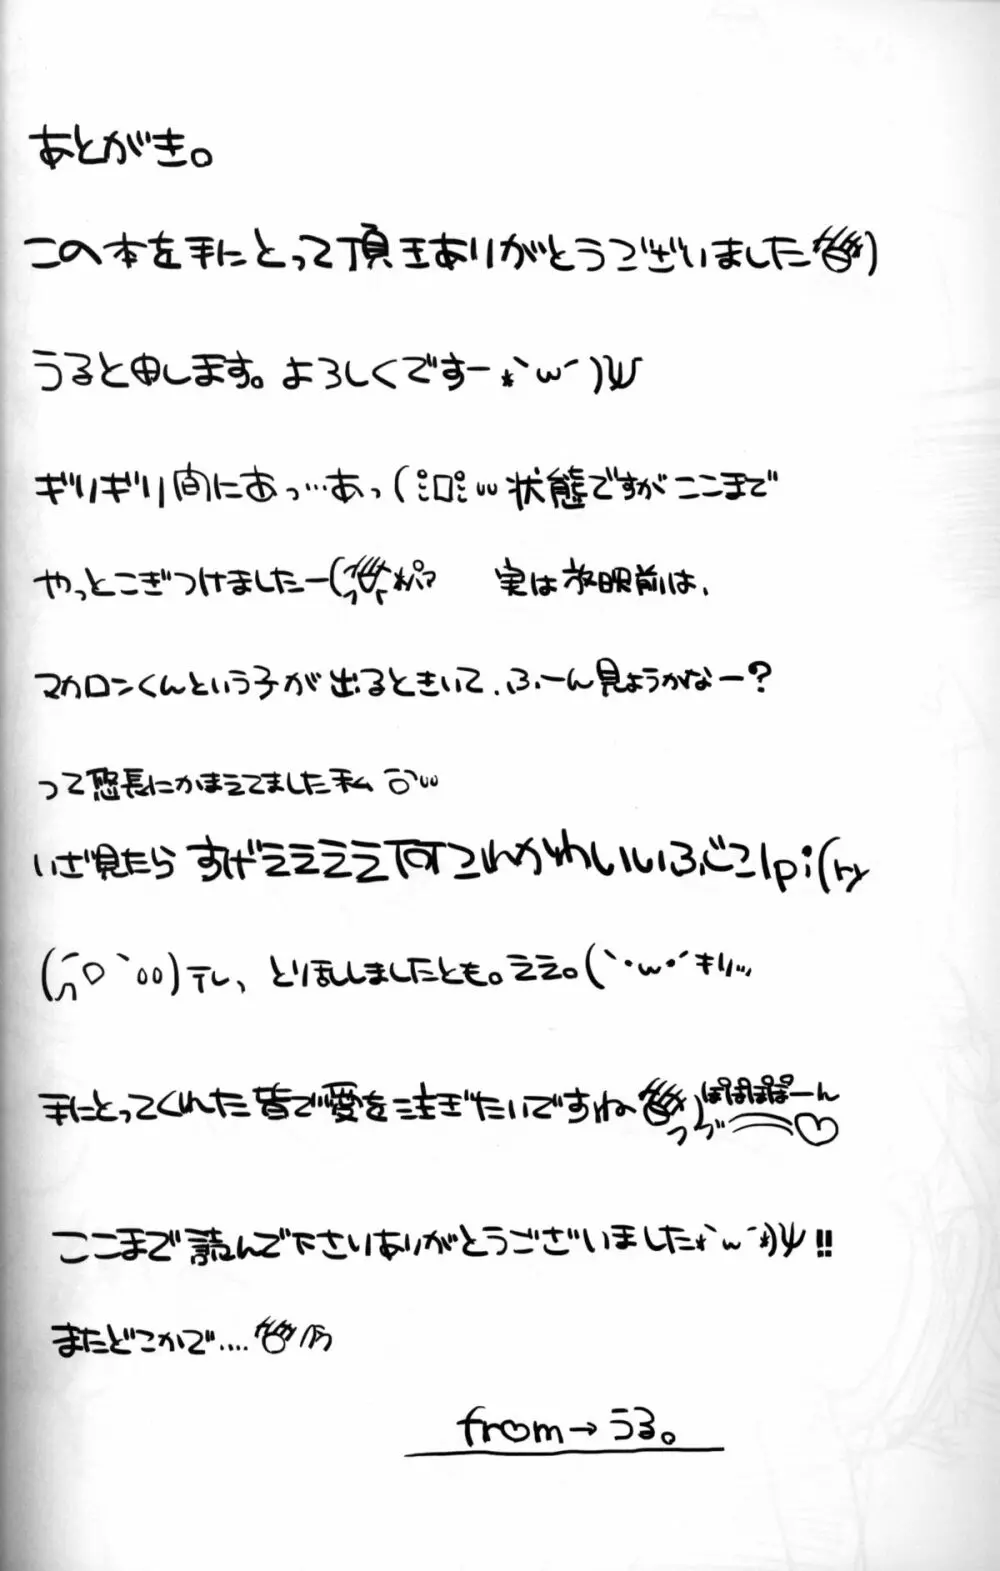 あとがき。
この本を手にとって頂きありがとうございました)
うると申します。よろしくですー *`ω´)ψ
ギリギリ間にあっ…あっ( ロ ω状態ですがここまで
やっとこぎつけましたー( 実は放映前は、
マカロンくんという子が出るときいて、ふーん見ようかなー?
って悠長にかまえてました私
いざ見たら すげえええええ何これかわいいいふごごlpi(ry
(´ o `oo)テレ、とり乱しましたとも。ええ。(`・ω・´キリッ
手にとってくれた皆で愛を注ぎたいですね ) ぽぽぽぽーん ♡
ここまで読んで下さりありがとうございました*`ω´*)ψ!!
またどこかで....
from→うる。